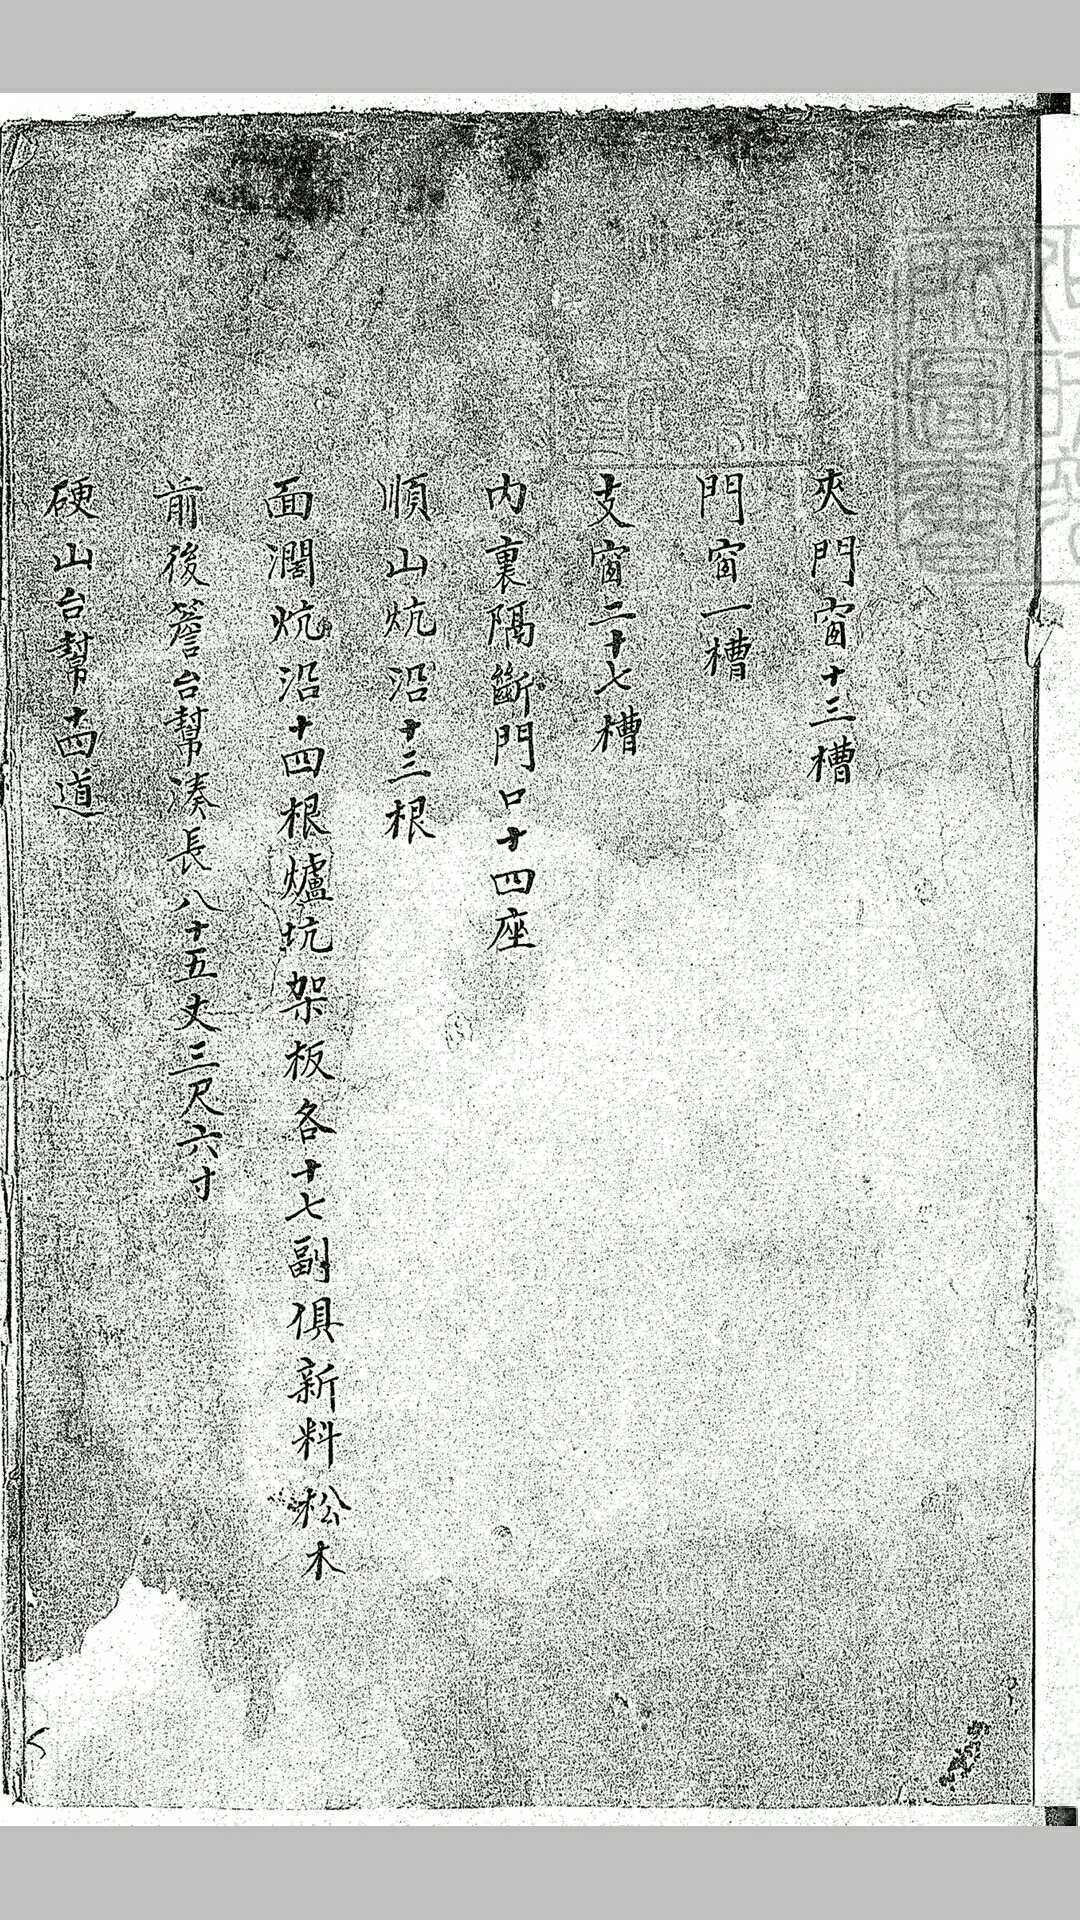 夾門窗十三槽
門窗一槽
支窗二十七槽
內裏隔斷門口十四座
順山炕沿十三根
面濶炕沿十四根爐坑架板各十七副俱新料松木
前後簷台幫湊長八十五丈三尺六寸
硬山台幫十四道